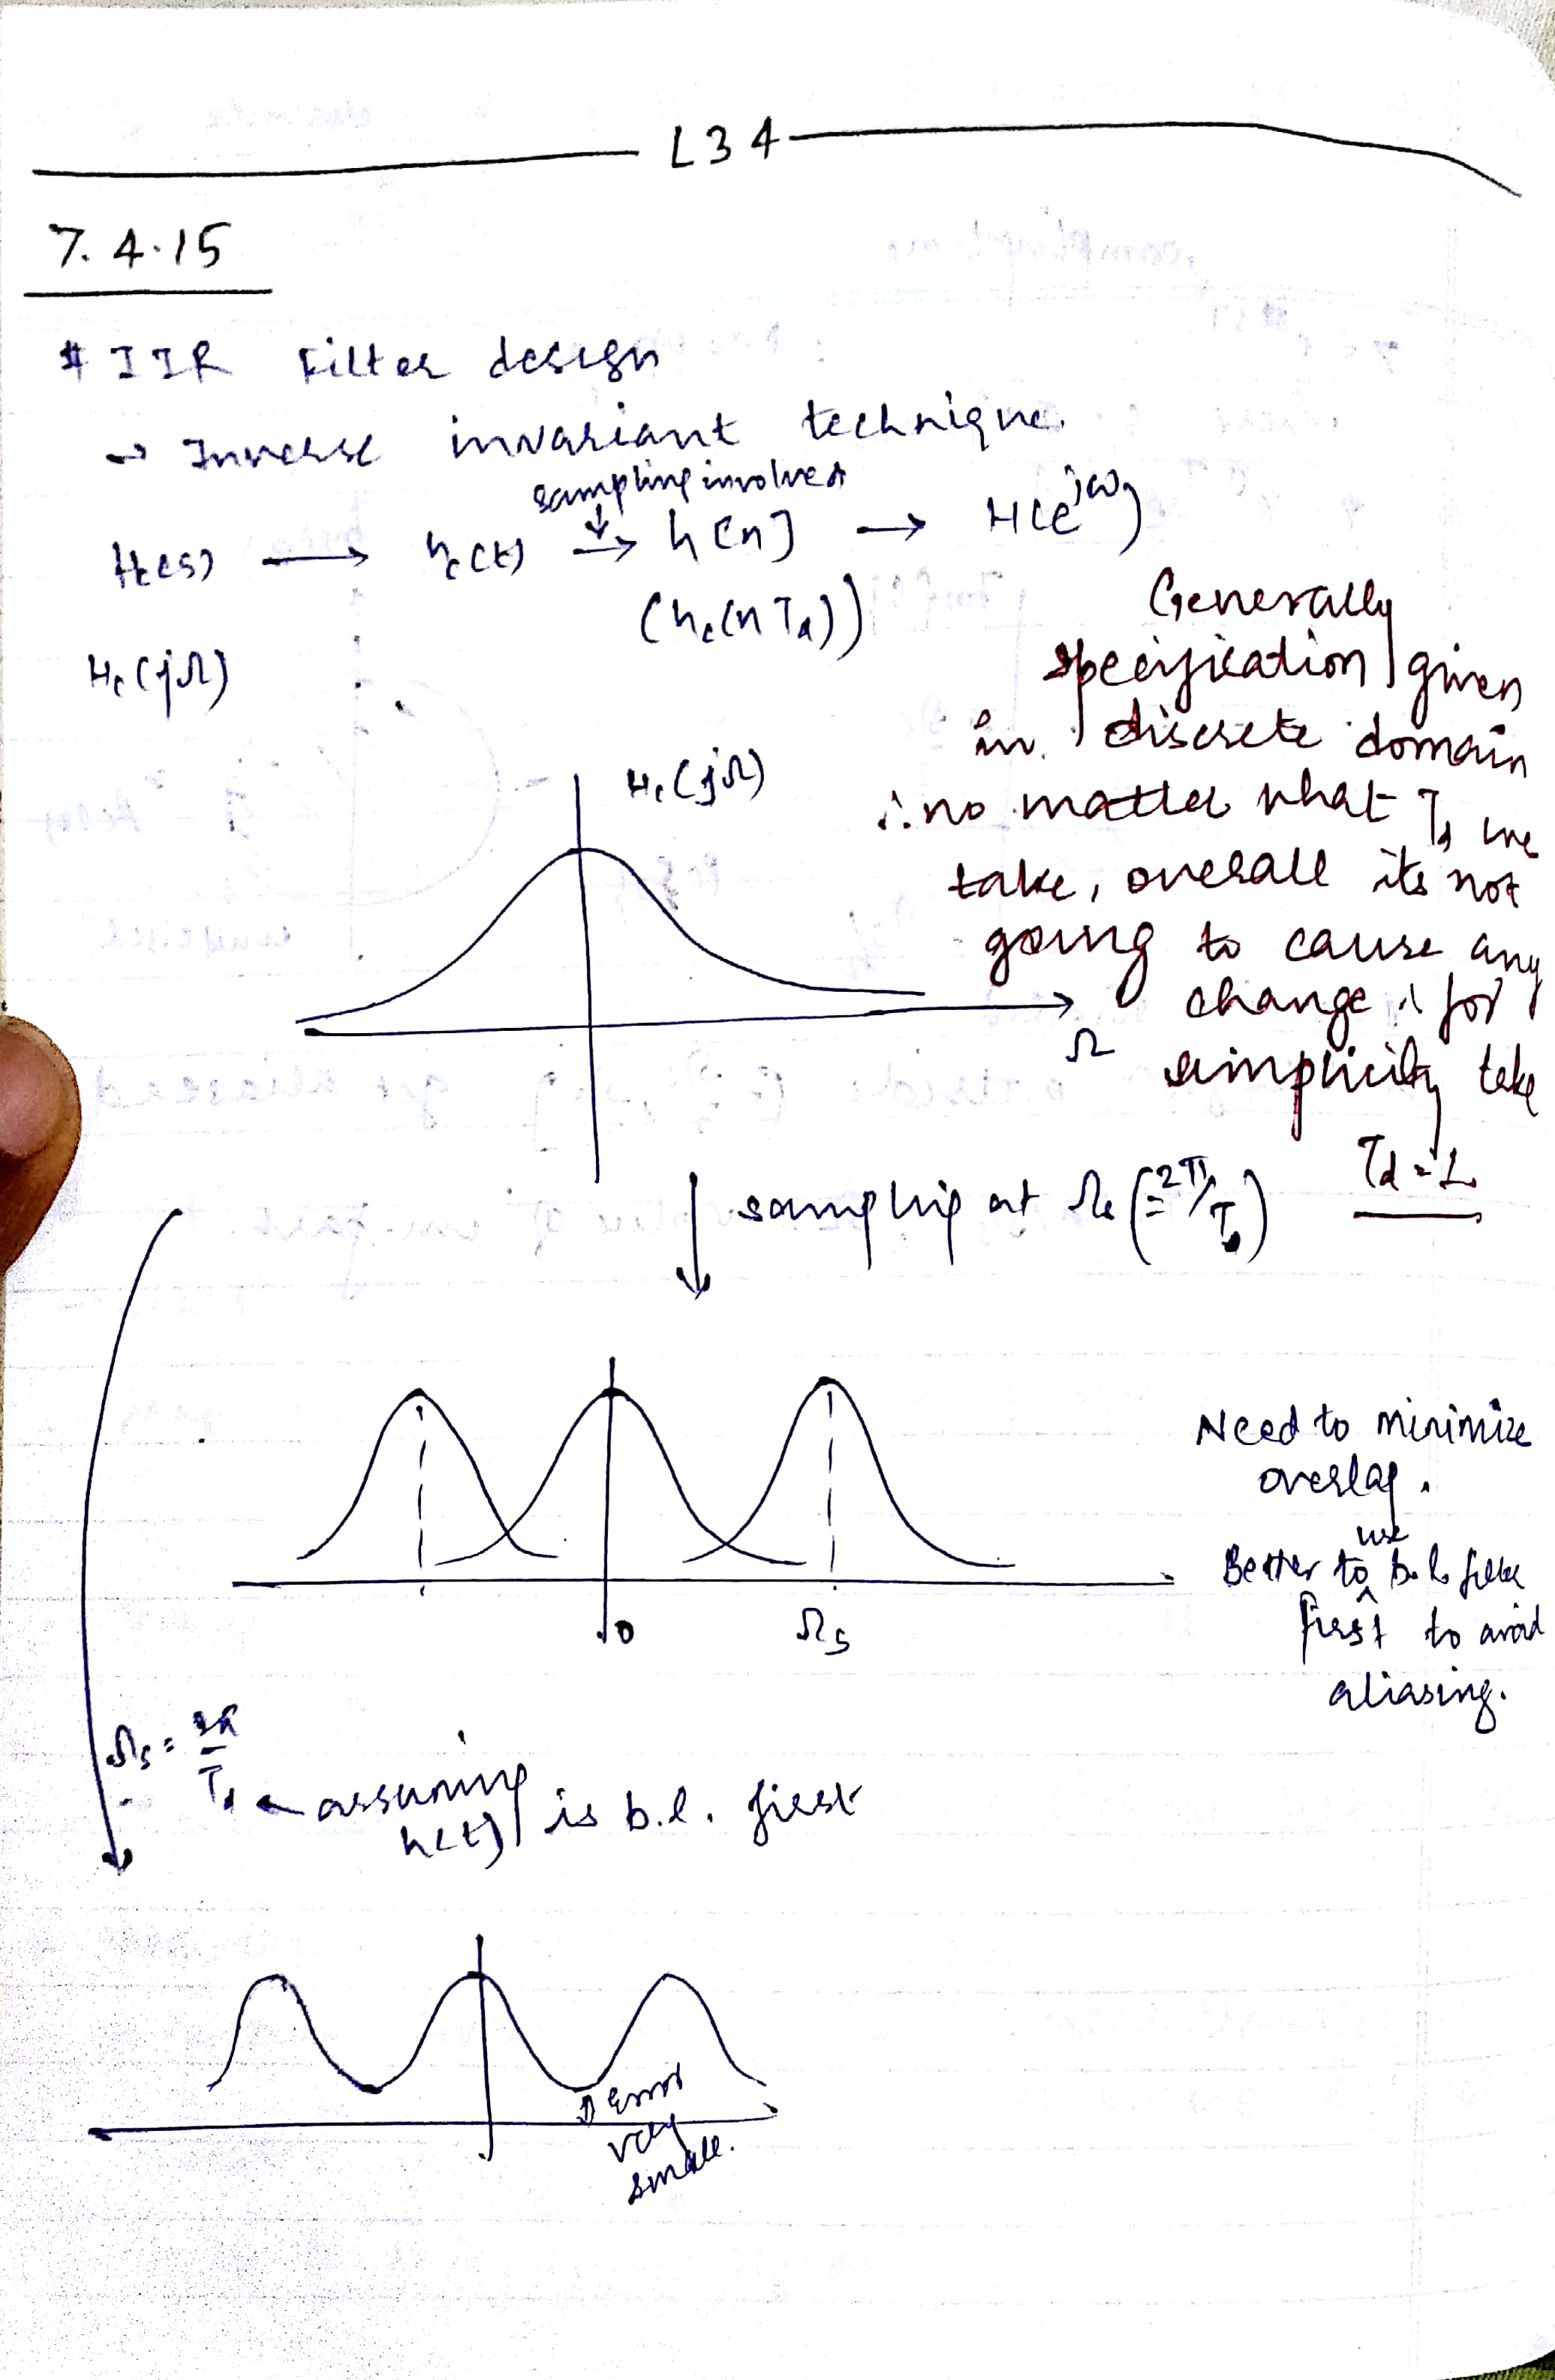 L34
7.4.15
# IIR Filter design
→ Inverse invariant technique.
sampling involved
Hc(s) → hc(t) → h[n] → H(e^jω)
(hc(nTd))
Hc(jΩ)
Generally
specification given
in discrete domain
∴ no matter what Td we
take, overall its not
going to cause any
change & for
simplicity take
Td = 1
Hc(jΩ)
Ω
sampling at Ωs (= 2π/Td)
Need to minimize
overlap.
Better to use b.l. filter
first to avoid
aliasing.
0 Ωs
Ωs = 2π/Td ← assuming
h(t) is b.l. first
Error
very
small.